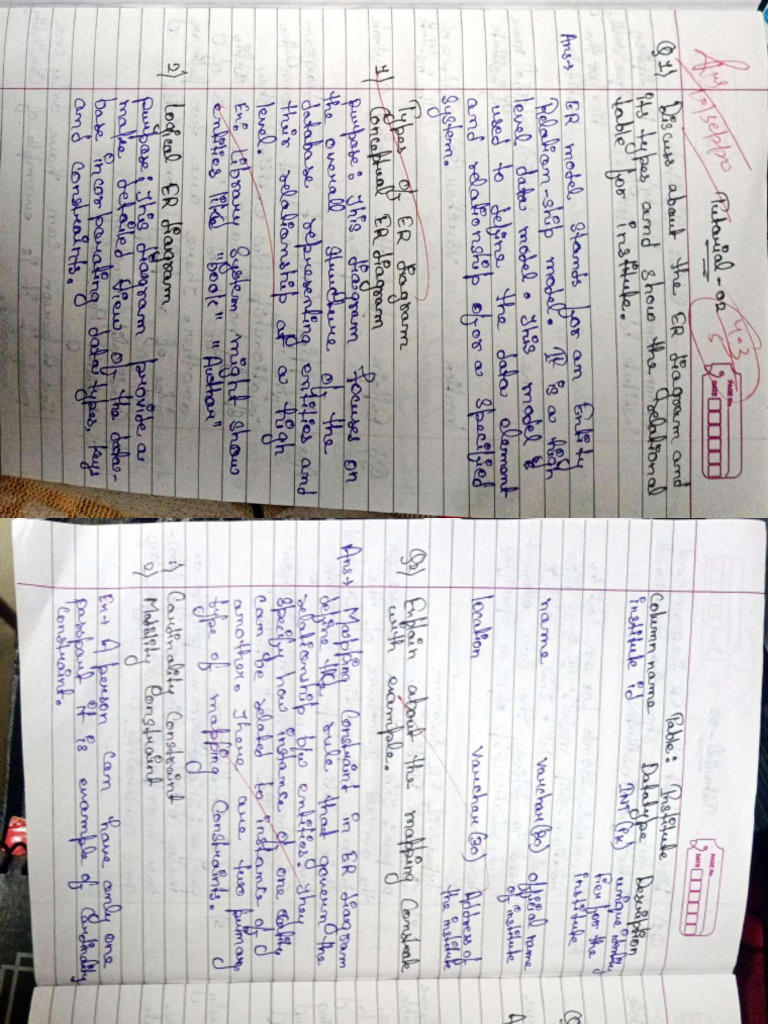 Tutorial - 02
4.3
5
PAGE No.
DATE
Q1) Discuss about the ER diagram and
its types and show the relational
table for institute.
Ans→ ER model stands for an Entity
Relation-ship model. It is a high
level data model. This model is
used to define the data element
and relationship of or a specified
system.
Types of ER diagram
1) Conceptual ER diagram
purpose: This diagram focuses on
the overall structure of the
database representing entities and
their relationship at a high
level.
En: Library System might show
entities like "book" "Author"
2) logical ER diagram
purpose: This diagram provide a
more detailed view of the data-
base incorporating data types, keys
and constraints.
PAGE No.
DATE
Table: Institute
Column name Datatype Description
institute id INT (PK) unique
for the
institute
name varchar(20) official name
of institute
location varchar(30) Address of
the institute
Q2) Explain about the mapping
with example.
Ans→ Mapping Constraint in ER diagram
define the rule that govern the
relationship b/w entities. They
specify how instance of one entity
can be related to instance of
another. There are two primary
type of mapping Constraints.
1) Cardinality Constraint
Constraint
En→ A person can have only one
passport it is example of
constraint.